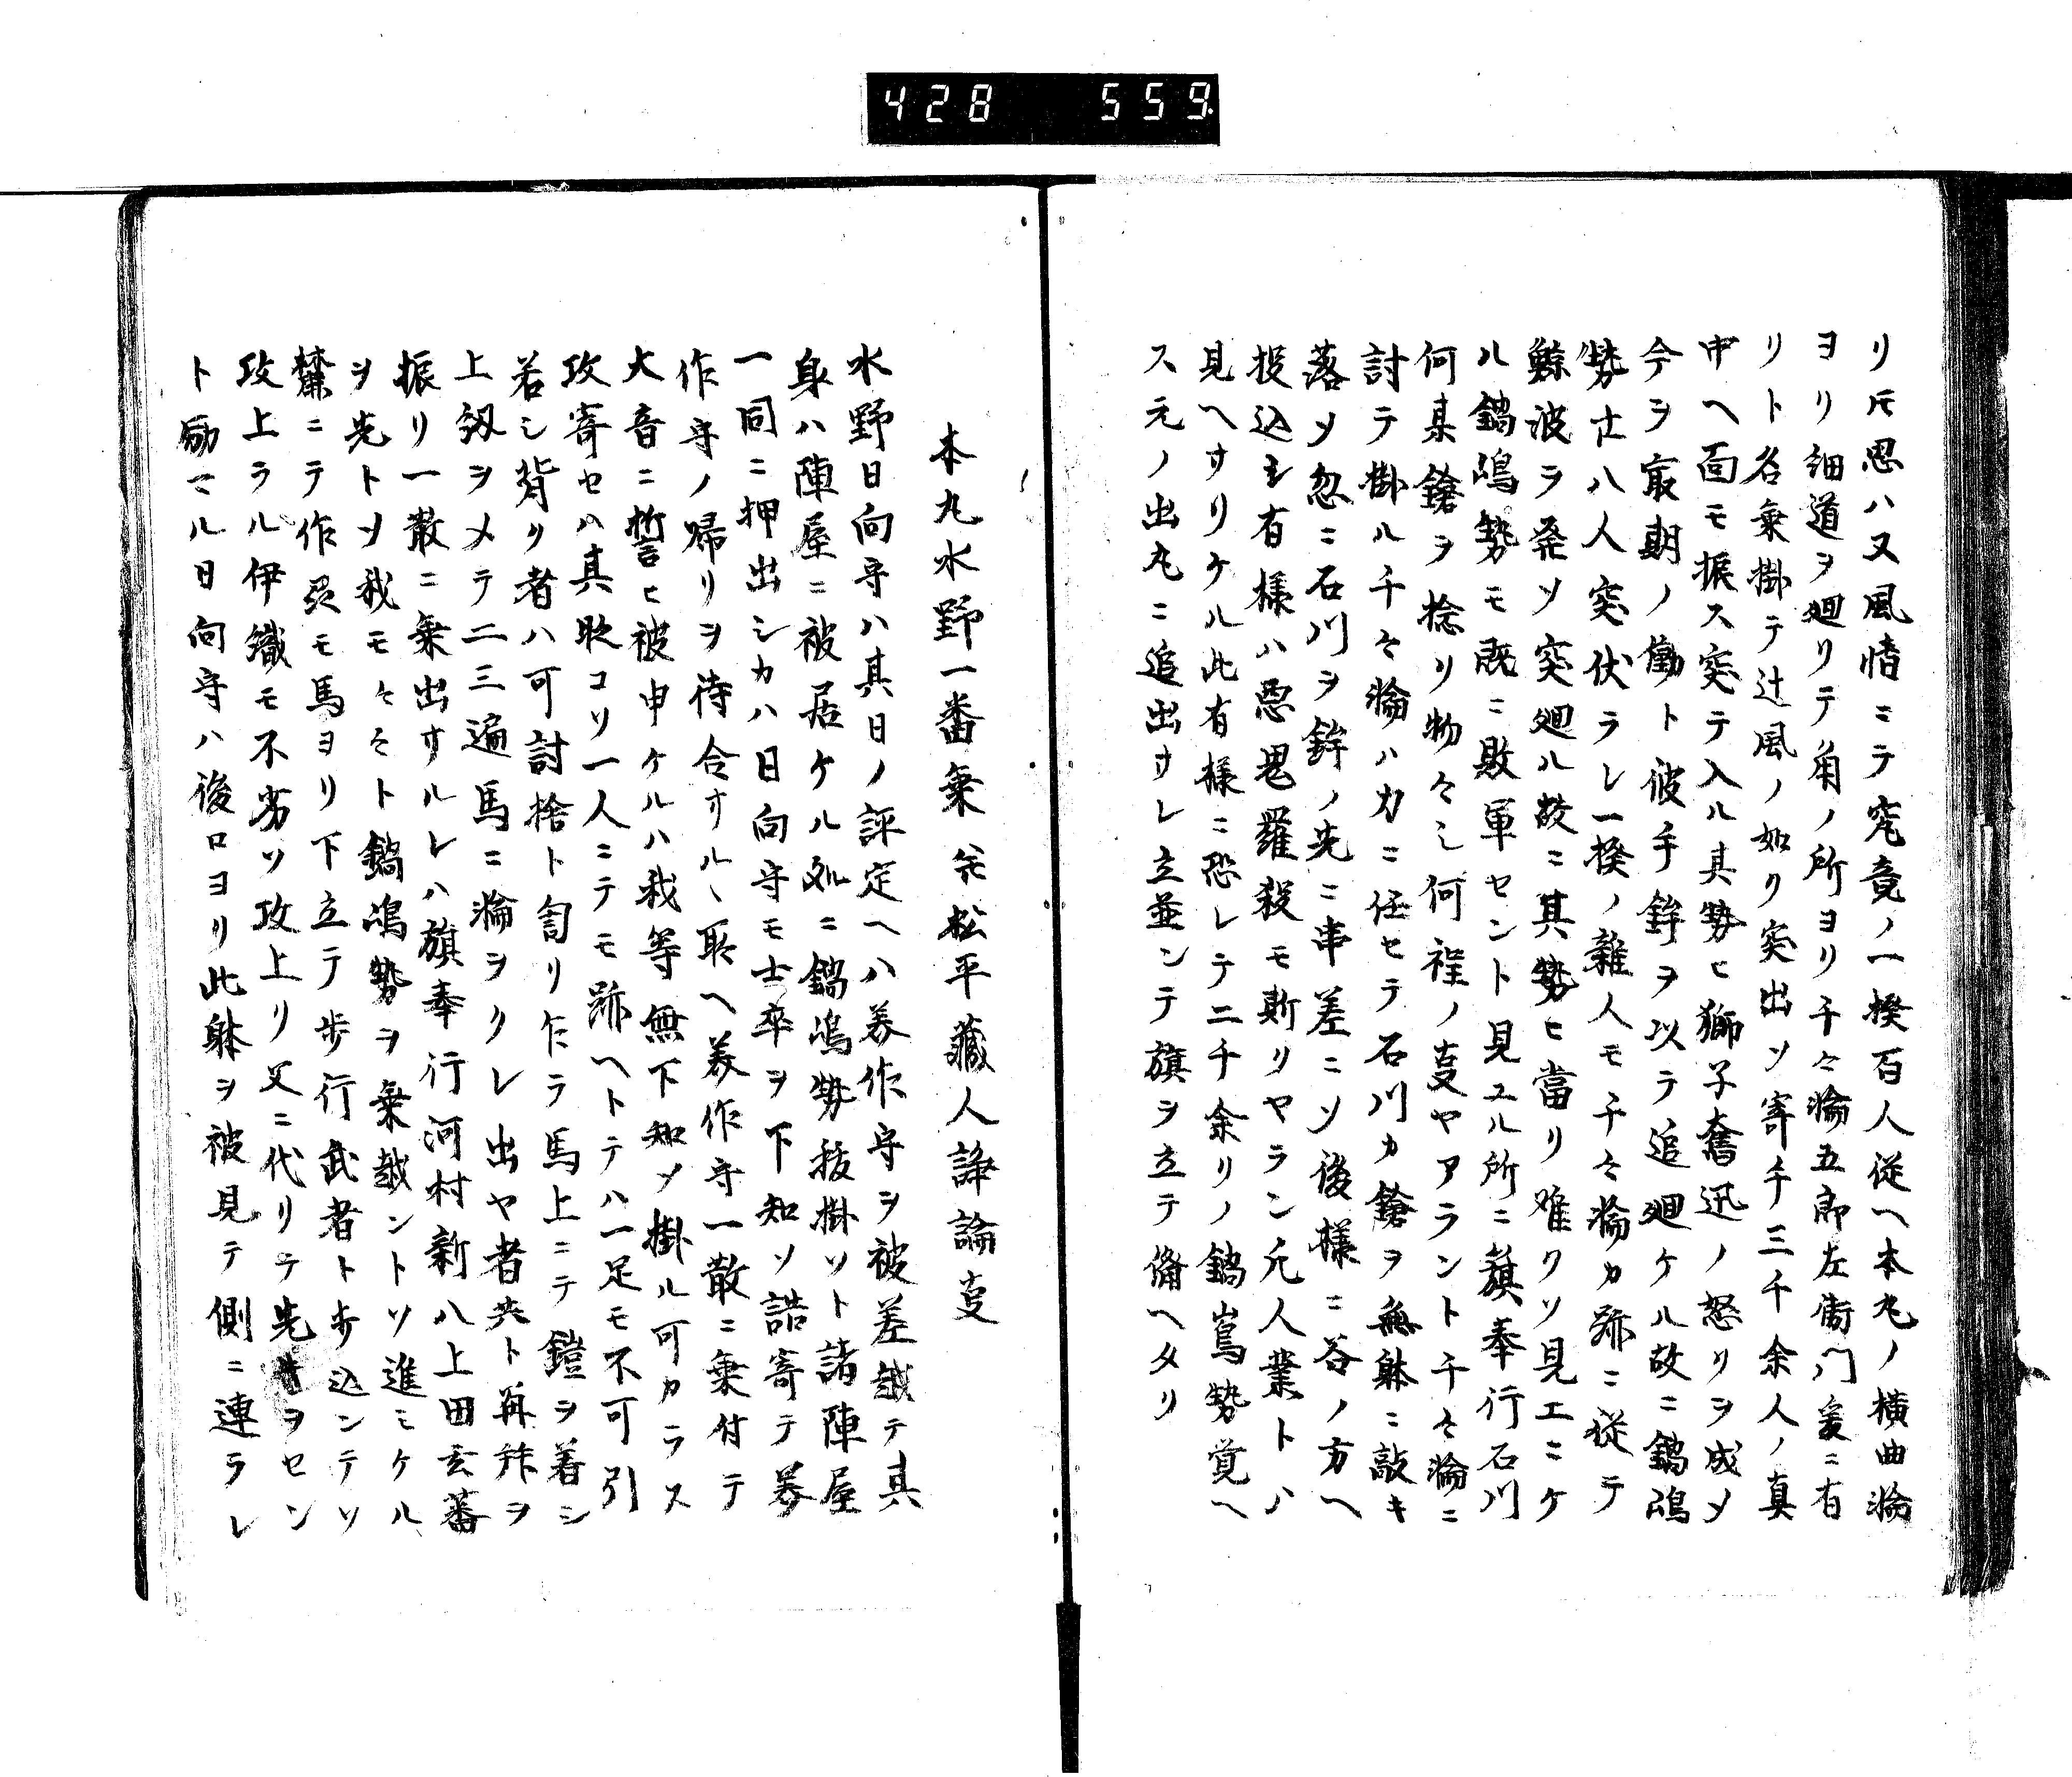 428 559
リ𪜈思ハ又風情ニテ究竟ノ一揆百人従ヘ本丸ノ横曲輪
ヨリ細道ヲ廻リテ角ノ所ヨリ千々輪五郎左衛門爰ニ有
リト名乗掛テ辻風ノ如ク突出ソ寄手三千余人ノ真
中ヘ面モ振ス突テ入ル其勢ヒ獅子奮迅ノ怒リヲ成メ
今ヲ最期ノ働ト彼手鉾ヲ以テ追廻ケル故ニ鍋嶋
勢廿八人突伏ラレ一揆ノ雑人モ千々輪カ跡ニ従テ
鯨波ヲ発ソ突廻ル故ニ其勢ヒ當リ难クソ見エニケ
ル鍋嶋勢モ既ニ敗軍セント見ユル所ニ旗奉行石川
何某鎗ヲ捻リ物々シ何程ノ夏ヤアラント千々輪ニ
討テ掛ル千々輪ハ力ニ任セテ石川カ鎗ヲ無躰ニ敲キ
落ソ忽ニ石川ヲ鉾ノ先ニ串差ニソ後様ニ谷ノ方ヘ
投込シ有様ハ悪鬼羅殺モ斯リヤラン凡人業トハ
見ヘサリケル此有様ニ恐レテ二千余リノ鍋嶌勢覚ヘ
ス元ノ出丸ニ追出サレ立並ンテ旗ヲ立テ備ヘタリ
本丸水野一番乗 并松平藏人諍論夏
水野日向守ハ其日ノ評定ヘハ美作守ヲ被差越テ其
身ハ陣屋ニ被居ケル処ニ鍋嶋勢抜掛ソト諸陣屋
一同ニ押出シカハ日向守モ士卒ヲ下知ソ詰寄テ美
作守ノ帰リヲ待合サル丶所ヘ美作守一散ニ乗付テ
大音ニ誓ヒ被申ケルハ我等無下知ソ掛ル可カラス
攻寄セハ真政コリ一人ニテモ跡ヘトテハ一足モ不可引
若シ背ク者ハ可討捨ト訇リ乍ラ馬上ニテ鎧ヲ着シ
上釼ヲメテ二三遍馬ニ輪ヲクレ出ヤ者共ト再拝ヲ
振リ一散ニ乗出サルレハ旗奉行河村新八上田玄蕃
ヲ先トソ我モ々々ト鍋嶋勢ヲ乗越ントソ進ミケル
麓ニテ作州モ馬ヨリ下立テ歩行武者ト歩込ンテソ
攻上ラル伊織モ不劣ソ攻上リ父ニ代リテ先サキヲセン
ト励マル日向守ハ後口ヨリ此躰ヲ被見テ側ニ連ラレ